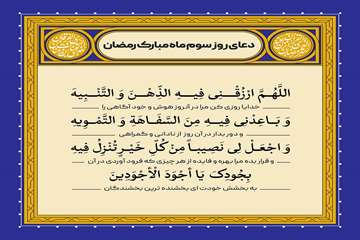 دعای روز سوم ماه مبارک رمضان
اللَّهُمَّ ارْزُقْنِی فِیهِ الذِّهْنَ وَ التَّنْبِیهَ
خدایا روزی کن مرا در آنروز هوش و خود آگاهی را
وَ بَاعِدْنِی فِیهِ مِنَ السَّفَاهَةِ وَ التَّمْوِیهِ
و دور بدار در آن روز از نادانی و گمراهی
وَ اجْعَلْ لِی نَصِیباً مِنْ كُلِّ خَیْرٍ تُنْزِلُ فِیهِ
و قرار بده مرا بهره و فایده از هر چیزی که فرود آوردی در آن
بِجُودِکَ یَا أَجْوَدَ الْأَجْوَدِینَ
به بخشش خودت ای بخشنده ترین بخشندگان